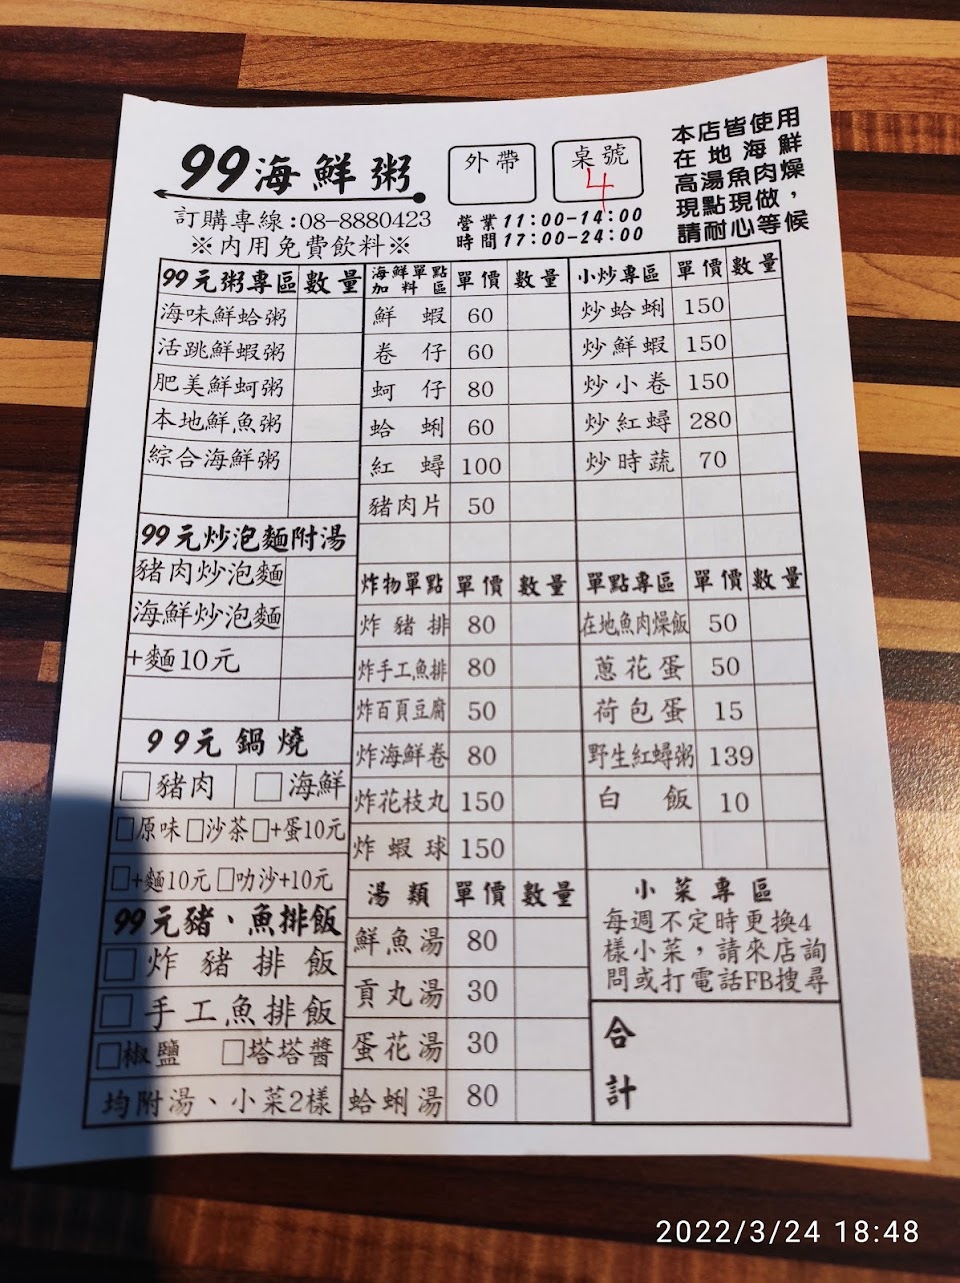 99海鮮粥
外帶
桌號
4
本店皆使用
在地海鮮
高湯魚肉燥
現點現做，
請耐心等候
訂購專線:08-8880423
※內用免費飲料※
營業 11:00-14:00
時間 17:00-24:00
99元粥專區 數量
海味鮮蛤粥
活跳鮮蝦粥
肥美鮮蚵粥
本地鮮魚粥
綜合海鮮粥
99元炒泡麵附湯
豬肉炒泡麵
海鮮炒泡麵
+麵10元
99元鍋燒
□豬肉 □海鮮
□原味□沙茶□+蛋10元
□+麵10元□叻沙+10元
99元豬、魚排飯
□炸豬排飯
□手工魚排飯
□椒鹽 □塔塔醬
均附湯、小菜2樣
海鮮單點加料區 單價 數量
鮮蝦 60
卷仔 60
蚵仔 80
蛤蜊 60
紅蟳 100
豬肉片 50
炸物單點 單價 數量
炸豬排 80
炸手工魚排 80
炸百頁豆腐 50
炸海鮮卷 80
炸花枝丸 150
炸蝦球 150
湯類 單價 數量
鮮魚湯 80
貢丸湯 30
蛋花湯 30
蛤蜊湯 80
小炒專區 單價 數量
炒蛤蜊 150
炒鮮蝦 150
炒小卷 150
炒紅蟳 280
炒時蔬 70
單點專區 單價 數量
在地魚肉燥飯 50
蔥花蛋 50
荷包蛋 15
野生紅蟳粥 139
白飯 10
小菜專區
每週不定時更換4
樣小菜，請來店詢
問或打電話FB搜尋
合計
2022/3/24 18:48